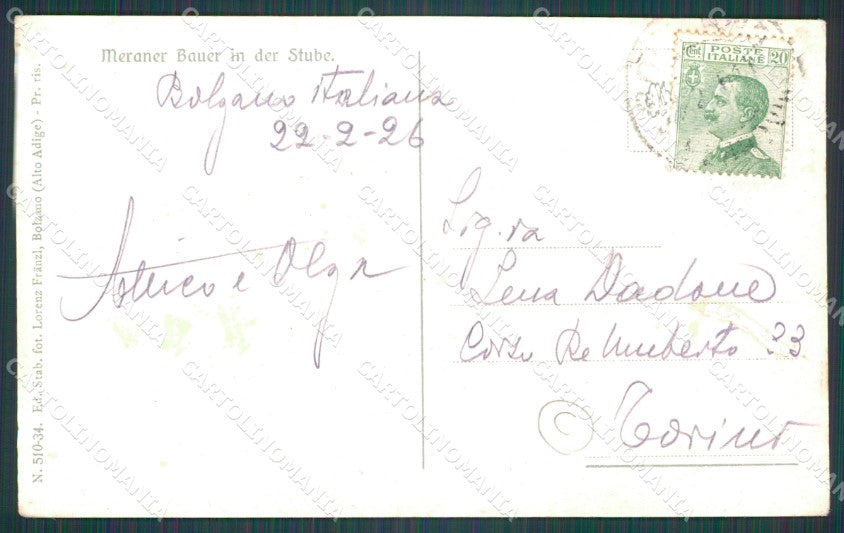 Meraner Bauer in der Stube.
Bolzano Italiana
22-2-26
Cent POSTE 20
ITALIANE
Sig.ra
Lena Dadone
Corso Re Umberto 23
Torino
e Olga
©
N. 510-34. Ed. Stab. fot. Lorenz Fränzl, Bolzano (Alto Adige) - Pr. ris.
CARTOLINOMANIA